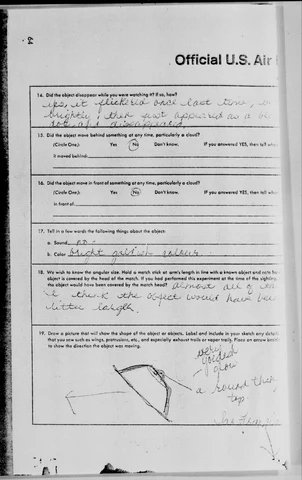 64
Official U.S. Air
14. Did the object disappear while you were watching it? If so, how?
yes, it flickered once last time,
brightly, then just appeared as a
dot and disappeared
15. Did the object move behind something at any time, particularly a cloud?
(Circle One): Yes No Don't know. If you answered YES, then tell what
It moved behind:
16. Did the object move in front of something at any time, particularly a cloud?
(Circle One): Yes No Don't know. If you answered YES, then tell what
in front of:
17. Tell in a few words the following things about the object:
a. Sound
b. Color bright goldish colour
18. We wish to know the angular size. Hold a match stick at arm's length in line with a known object and note how
object is covered by the head of the match. If you had performed this experiment at the time of the sighting,
the object would have been covered by the match head? almost all of
I think the object would have been
little larger.
19. Draw a picture that will show the shape of the object or objects. Label and include in your sketch any details
that you saw such as wings, protrusions, etc., and especially exhaust trails or vapor trails. Place an arrow beside
to show the direction the object was moving.
very
golden
glow
a round thing
top